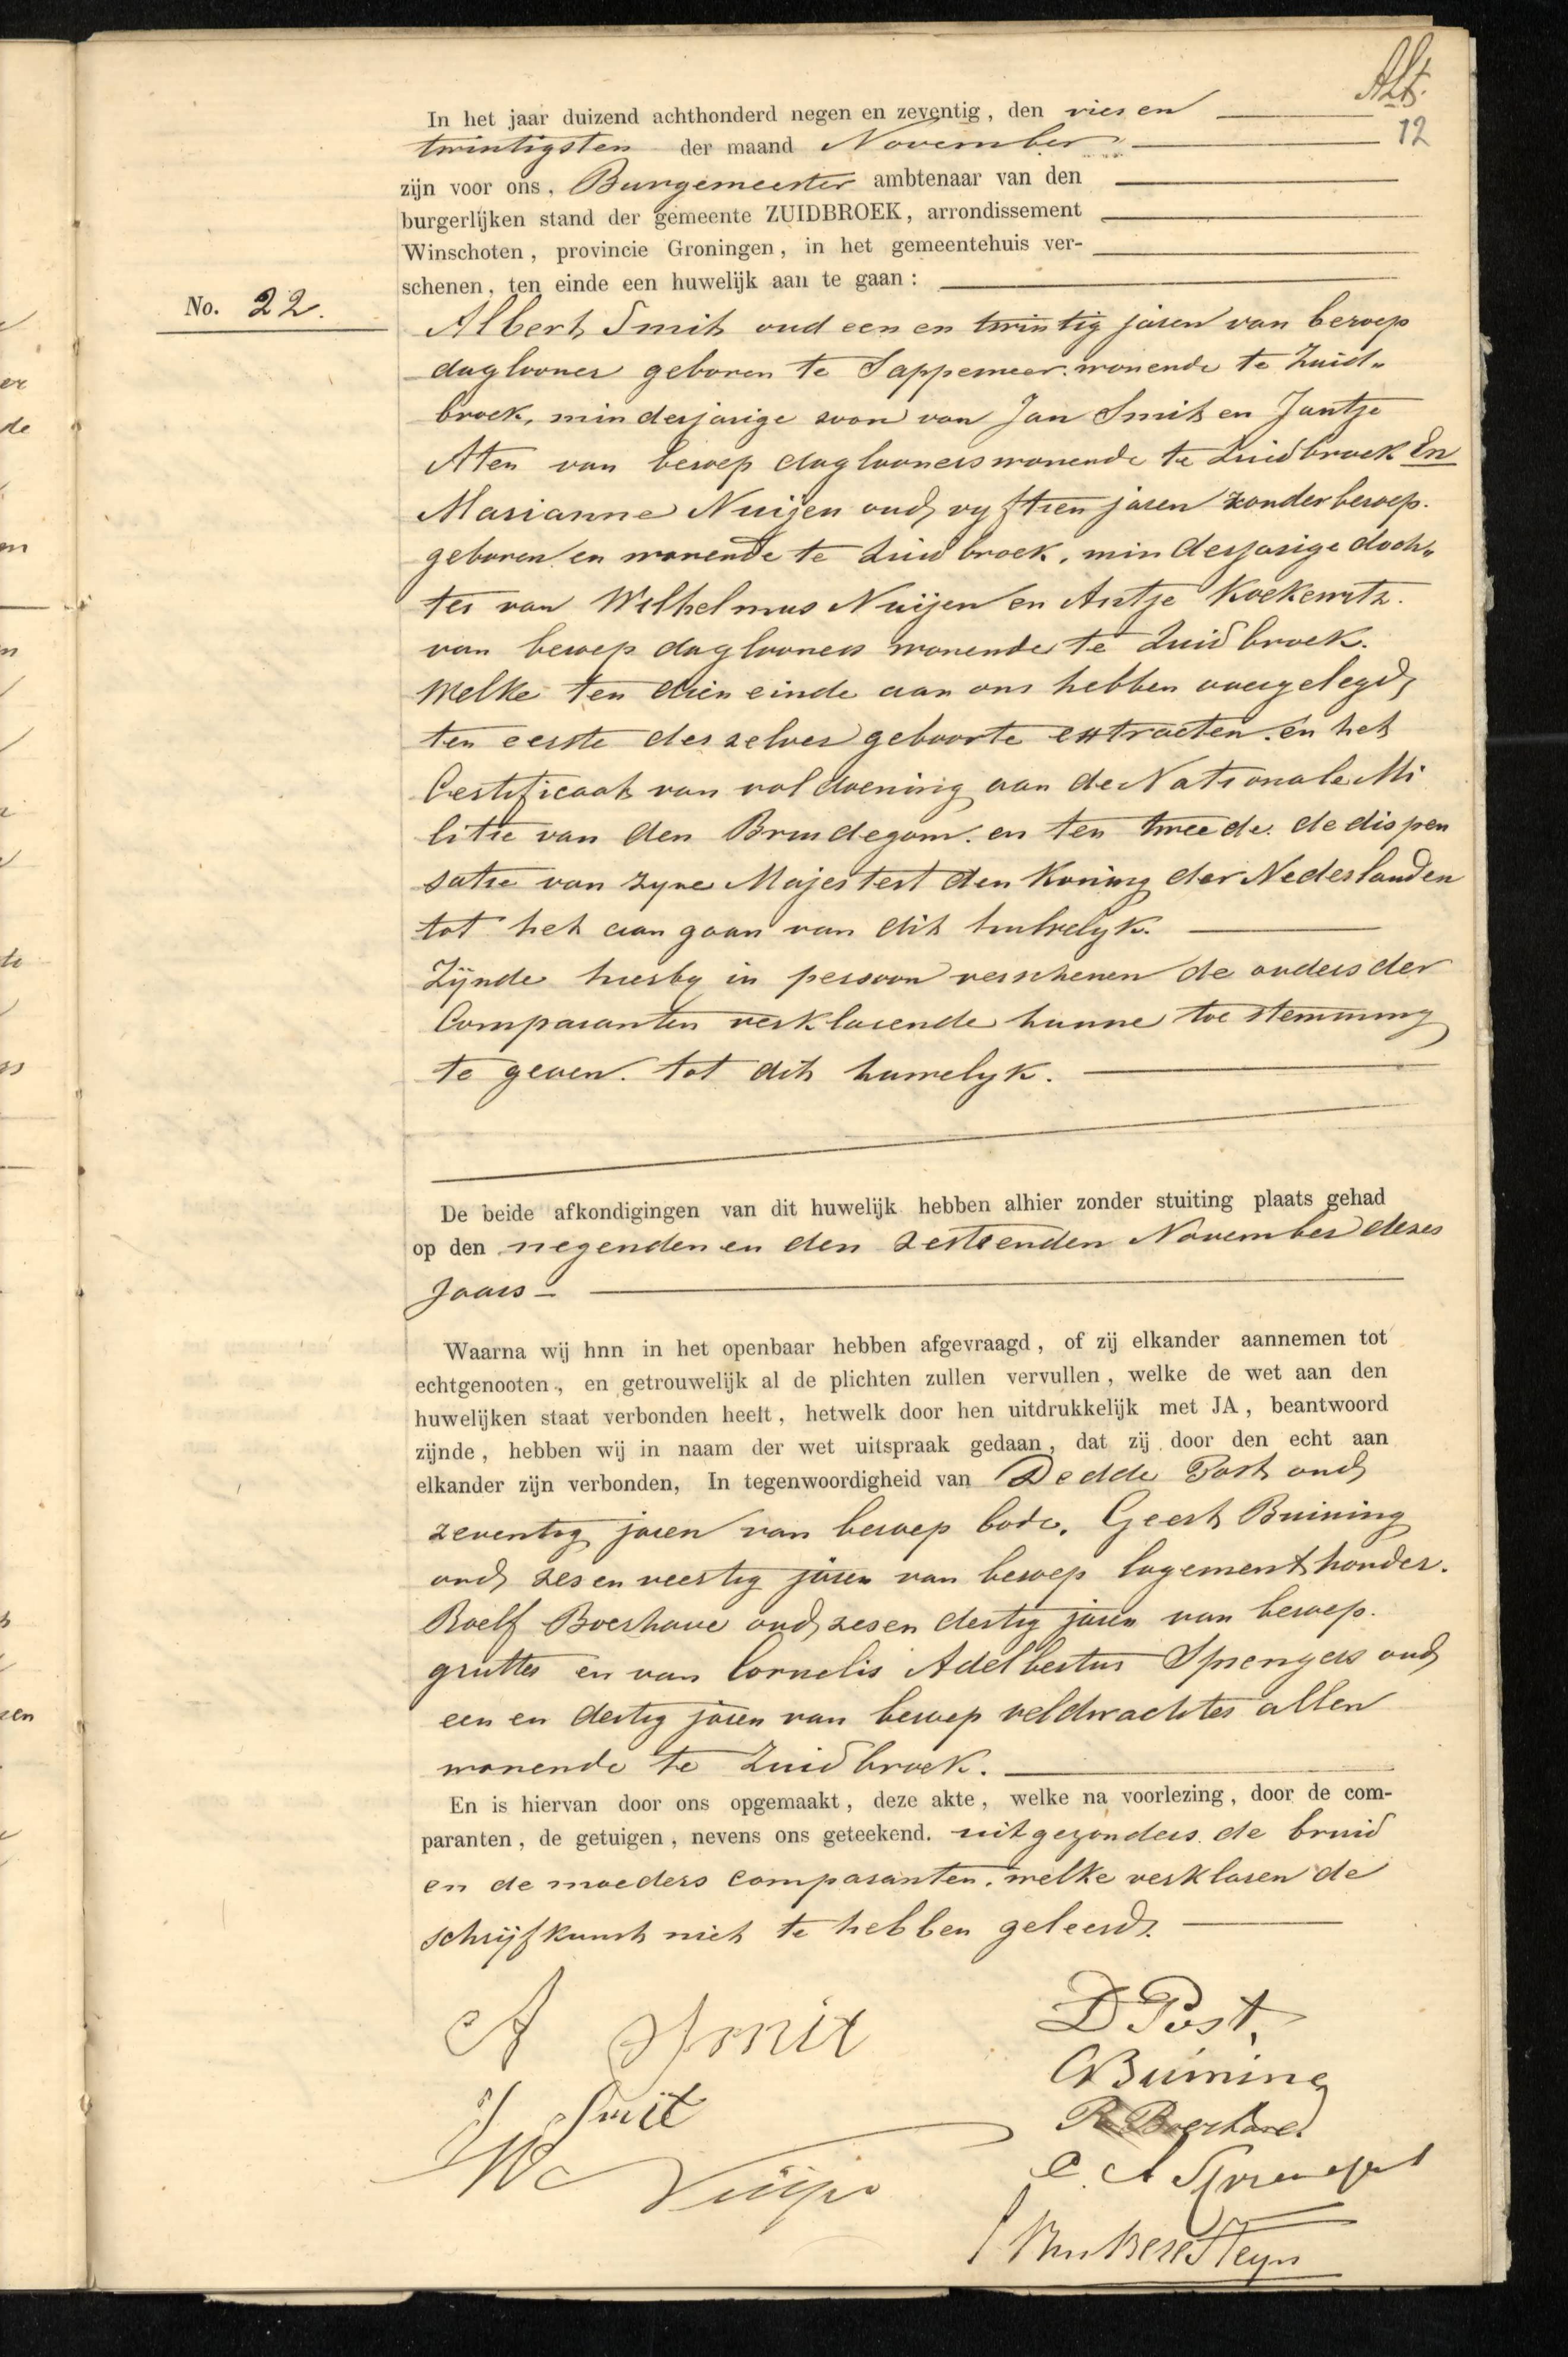 Alb.
12
In het jaar duizend achthonderd negen en zeventig, den vier en
twintigsten der maand November
zijn voor ons, Burgemeester ambtenaar van den
burgerlijken stand der gemeente ZUIDBROEK, arrondissement
Winschoten, provincie Groningen, in het gemeentehuis ver-
schenen, ten einde een huwelijk aan te gaan:
No. 22.
Albert Smit oud een en twintig jaren van beroep
daglooner geboren te Sappemeer. wonende te Zuid„
broek, minderjarige zoon van Jan Smit en Jantje
Aten van beroep daglooners wonende te Zuidbroek En
Marianne Nuijen oud vyftien jaren zonder beroep.
geboren en wonende te Zuidbroek, minderjarige doch„
ter van Wilhelmus Nuijen en Antje Koekewitz.
van beroep daglooners wonende te Zuidbroek.
Welke ten dien einde aan ons hebben overgelegd,
ten eerste derzelver geboorte extracten. en het
Certificaat van voldoening aan de Nationale Mi
litie van den Bruidegom. en ten tweede. de dispen
satie van zyne Majesteit den Koning der Nederlanden
tot het aangaan van dit huwelyk.
Zijnde hierby in persoon verschenen de ouders der
Comparanten verklarende hunne toestemming
te geven. tot dit huwelyk.
De beide afkondigingen van dit huwelijk hebben alhier zonder stuiting plaats gehad
op den negenden en den zestienden November dezes
Jaars
Waarna wij hnn in het openbaar hebben afgevraagd, of zij elkander aannemen tot
echtgenooten, en getrouwelijk al de plichten zullen vervullen, welke de wet aan den
huwelijken staat verbonden heeft, hetwelk door hen uitdrukkelijk met JA, beantwoord
zijnde, hebben wij in naam der wet uitspraak gedaan, dat zij door den echt aan
elkander zijn verbonden, In tegenwoordigheid van Dedde Post oud
zeventig jaren van beroep bode, Geert Buining
oud zes en veertig jaren van beroep logementhouder.
Roelf Boerhave oud zes en dertig jaren van beroep.
grutter en van Cornelis Adelbertus Sprengers oud
een en dertig jaren van beroep veldwachter allen
wonende te Zuidbroek.
En is hiervan door ons opgemaakt, deze akte, welke na voorlezing, door de com-
paranten, de getuigen, nevens ons geteekend. uitgezonders. de bruid
en de moeders comparanten. welke verklaren de
schrijfkunst niet te hebben geleerd.
A Smit
D Post,
J Smit
G Buining
R Boerhave.
W Nuijen
C. A Sprengers